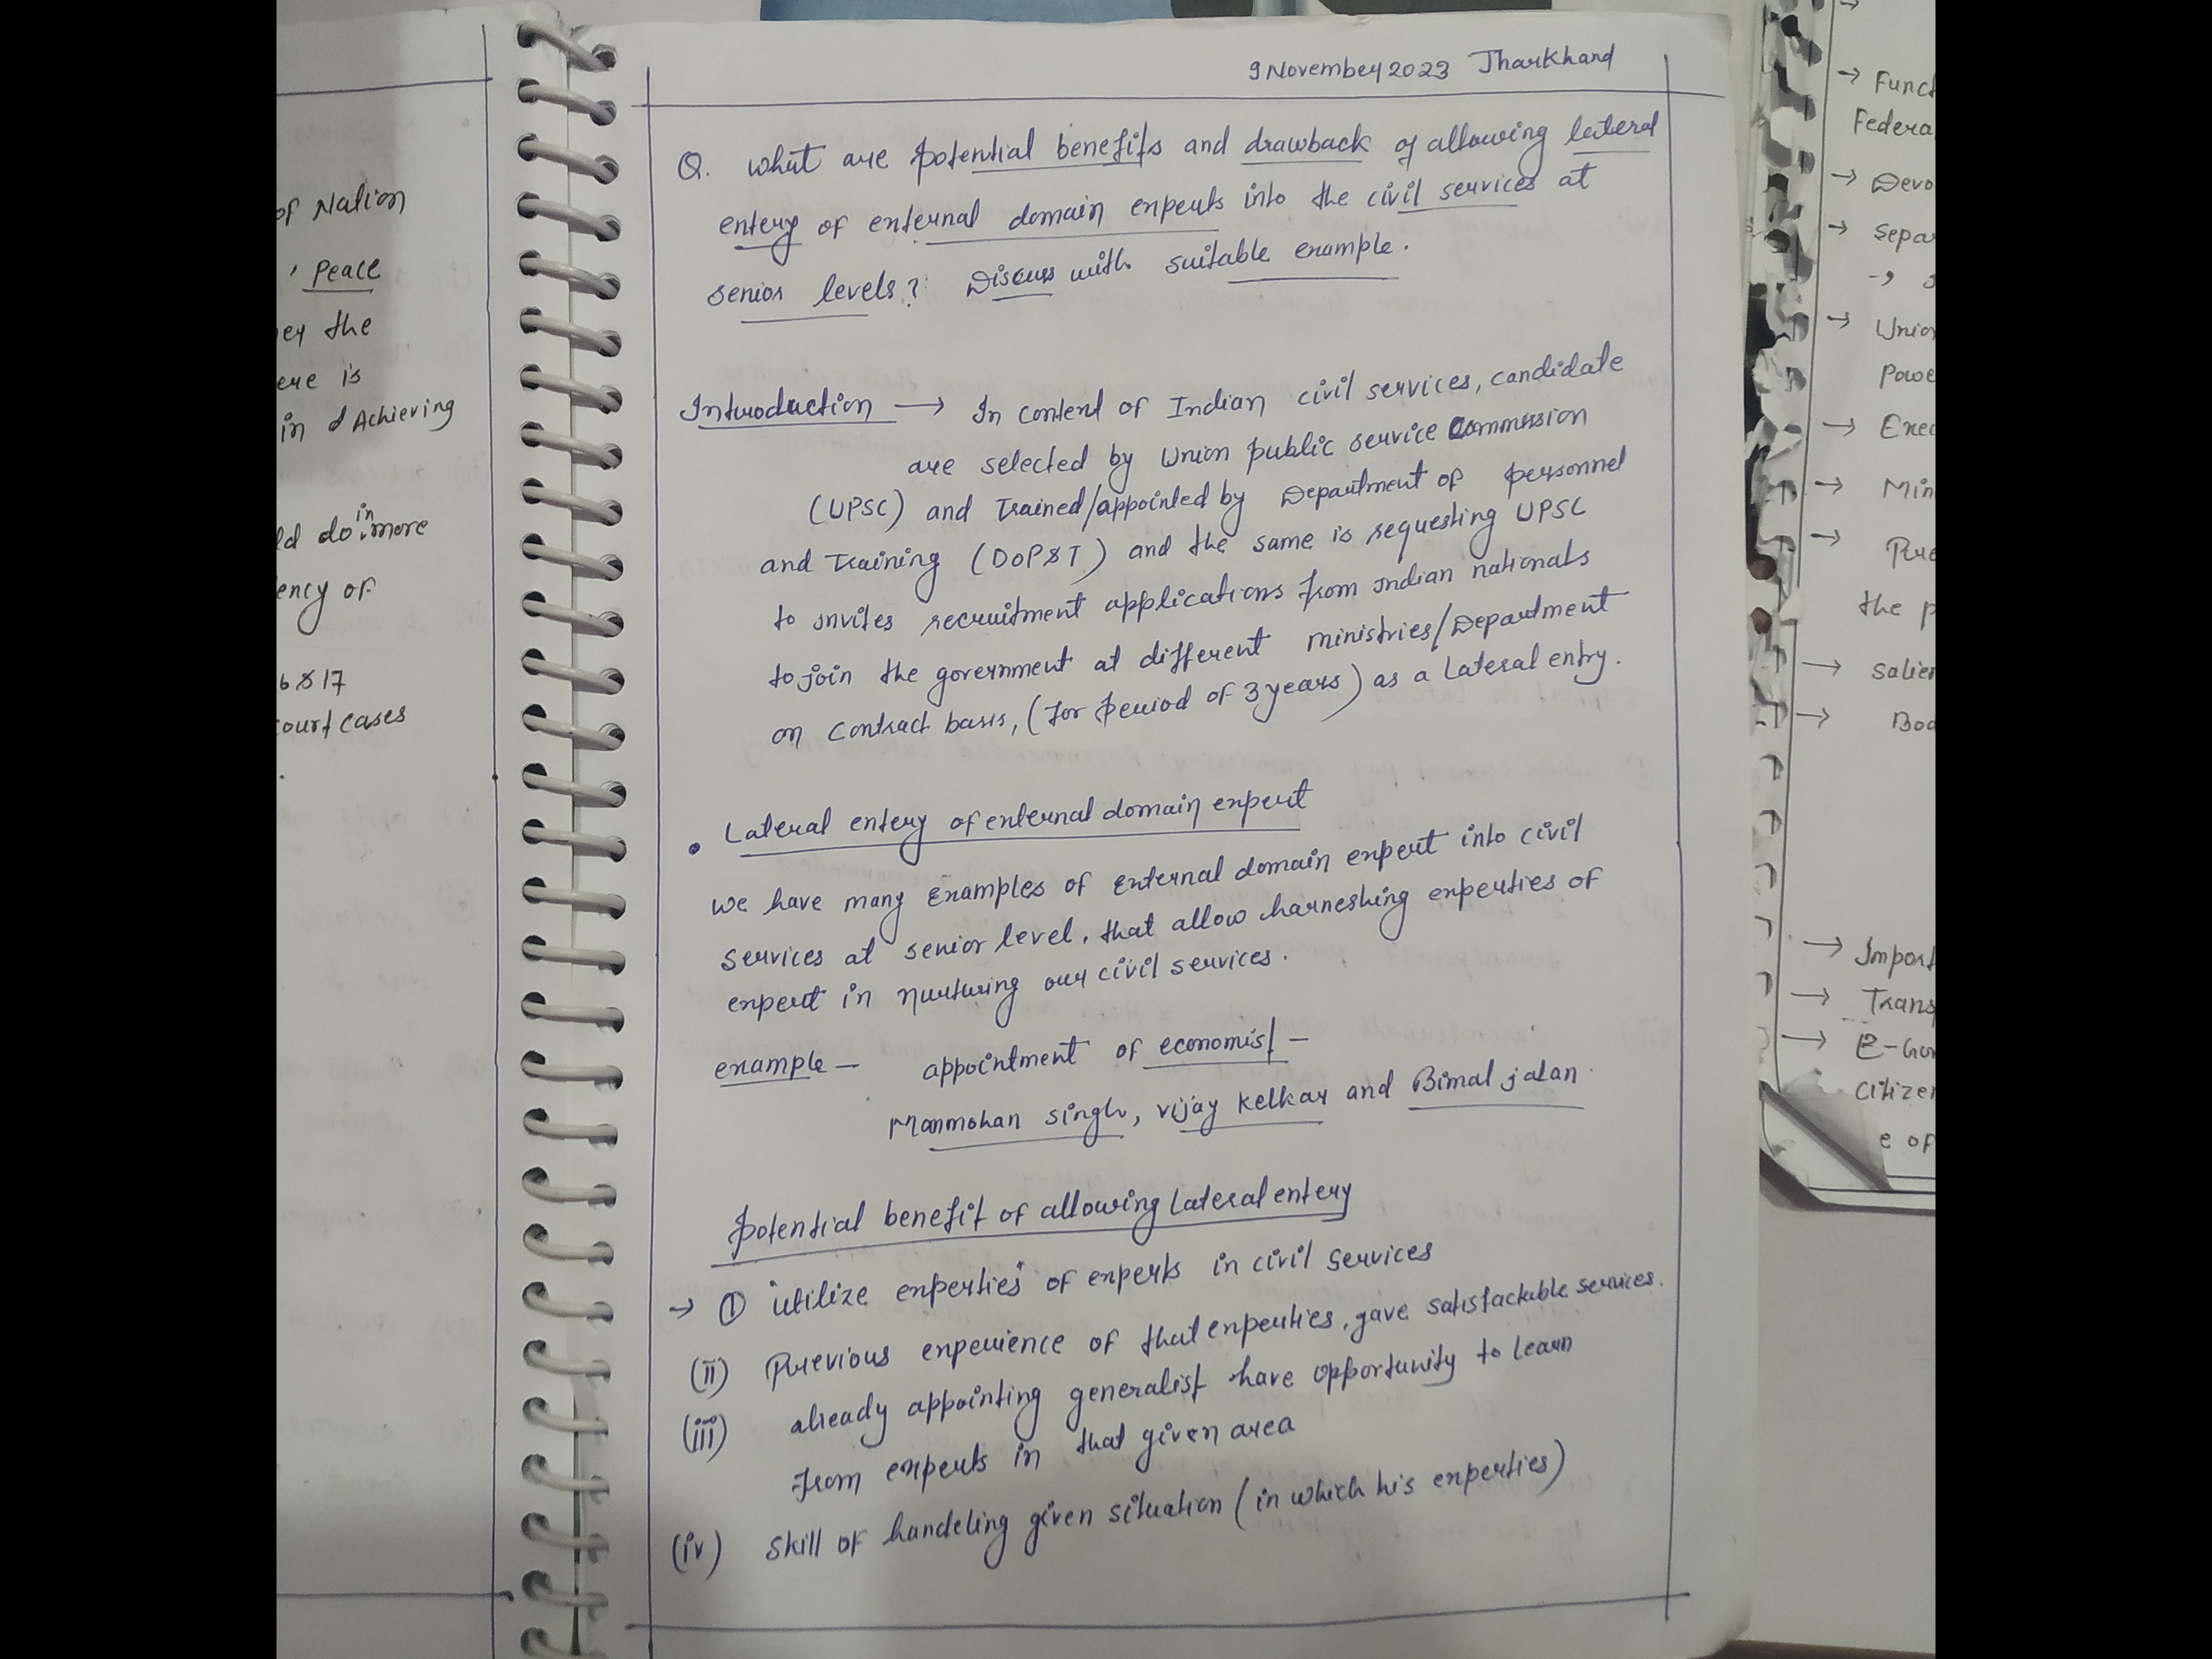 of Nation
, Peace
ey the
ere is
in & Achieving
ld do in more
ency of
6 & 17
court cases
9 November 2023 Jharkhand
Q. what are potential benefits and drawback of allowing lateral
entery of external domain experts into the civil services at
senior levels? Discuss with suitable example.
Introduction → In context of Indian civil services, candidate
are selected by Union public service Commission
(UPSC) and Trained/appointed by Department of personnel
and Training (DOP&T) and the same is requesting UPSC
to invites recruitment applications from indian nationals
to join the government at different ministries/Department
on contract basis, (for period of 3 years) as a Lateral entry.
• Lateral entery of external domain expert
we have many Examples of External domain expert into civil
services at senior level. that allow harneshing experties of
expert in nurturing our civil services.
example – appointment of economist –
Manmohan singh, vijay Kelkar and Bimal jalan.
Potential benefit of allowing Lateral entery
→ ① utilize experties of experts in civil services
(ii) Previous experience of that experties, gave satisfactable services.
(iii) already appointing generalist have opportunity to learn
from experts in that given area
(iv) skill of handeling given situation (in which his experties)
→ Funct
Federa
→ Devo
→ Separ
→ Union
Powe
→ Exec
→ Min
→ Pre
the p
→ Salien
→ Boa
→ Import
→ Trans
→ E-Gov
Citizen
e of